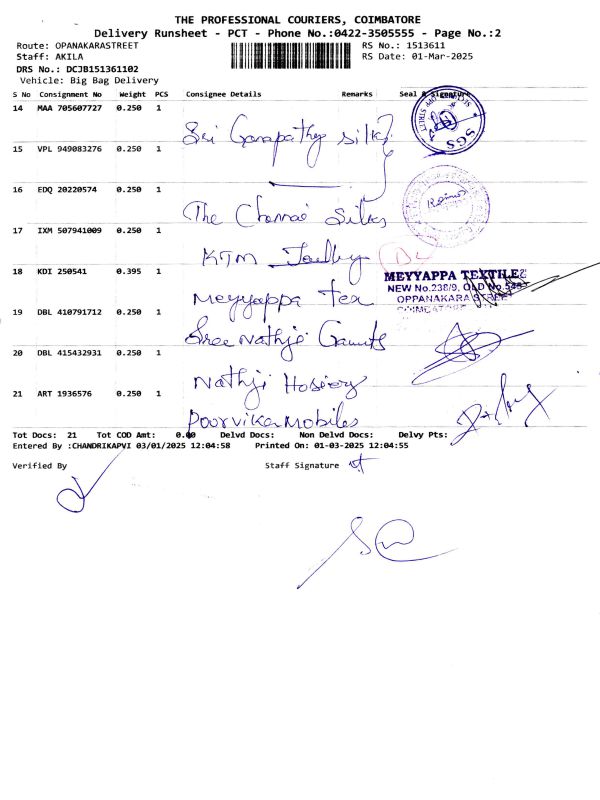 THE PROFESSIONAL COURIERS, COIMBATORE
Delivery Runsheet - PCT - Phone No.:0422-3505555 - Page No.:2
Route: OPANAKARASTREET RS No.: 1513611
Staff: AKILA RS Date: 01-Mar-2025
DRS No.: DCJB151361102
Vehicle: Big Bag Delivery
S No Consignment No Weight PCS Consignee Details Remarks Seal & Signature
14 MAA 705607727 0.250 1
Sri Ganapathy silks
SGS
15 VPL 949083276 0.250 1
16 EDQ 20220574 0.250 1
The Chennai Silks
17 IXM 507941009 0.250 1
KTM
18 KDI 250541 0.395 1
Meyyappa Tex
MEYYAPPA TEXTILES
NEW No.238/9, OLD No.548
OPPANAKARA STREET
COIMBATORE
19 DBL 410791712 0.250 1
Sree Nathji
20 DBL 415432931 0.250 1
Nathji Hosiery
21 ART 1936576 0.250 1
Poorvika Mobiles
Tot Docs: 21 Tot COD Amt: 0.00 Delvd Docs: Non Delvd Docs: Delvy Pts:
Entered By :CHANDRIKAPVI 03/01/2025 12:04:58 Printed On: 01-03-2025 12:04:55
Verified By Staff Signature